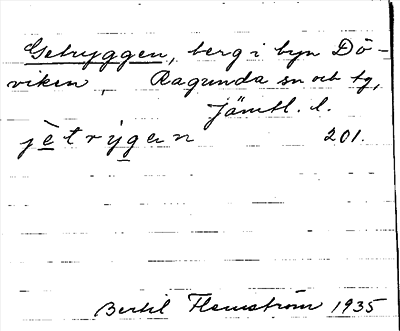 Getryggen, berg i byn Dö-
viken, Ragunda sn och tg,
Jämtl. l.
jètrỳgen 201.
Bertil Flemström 1935